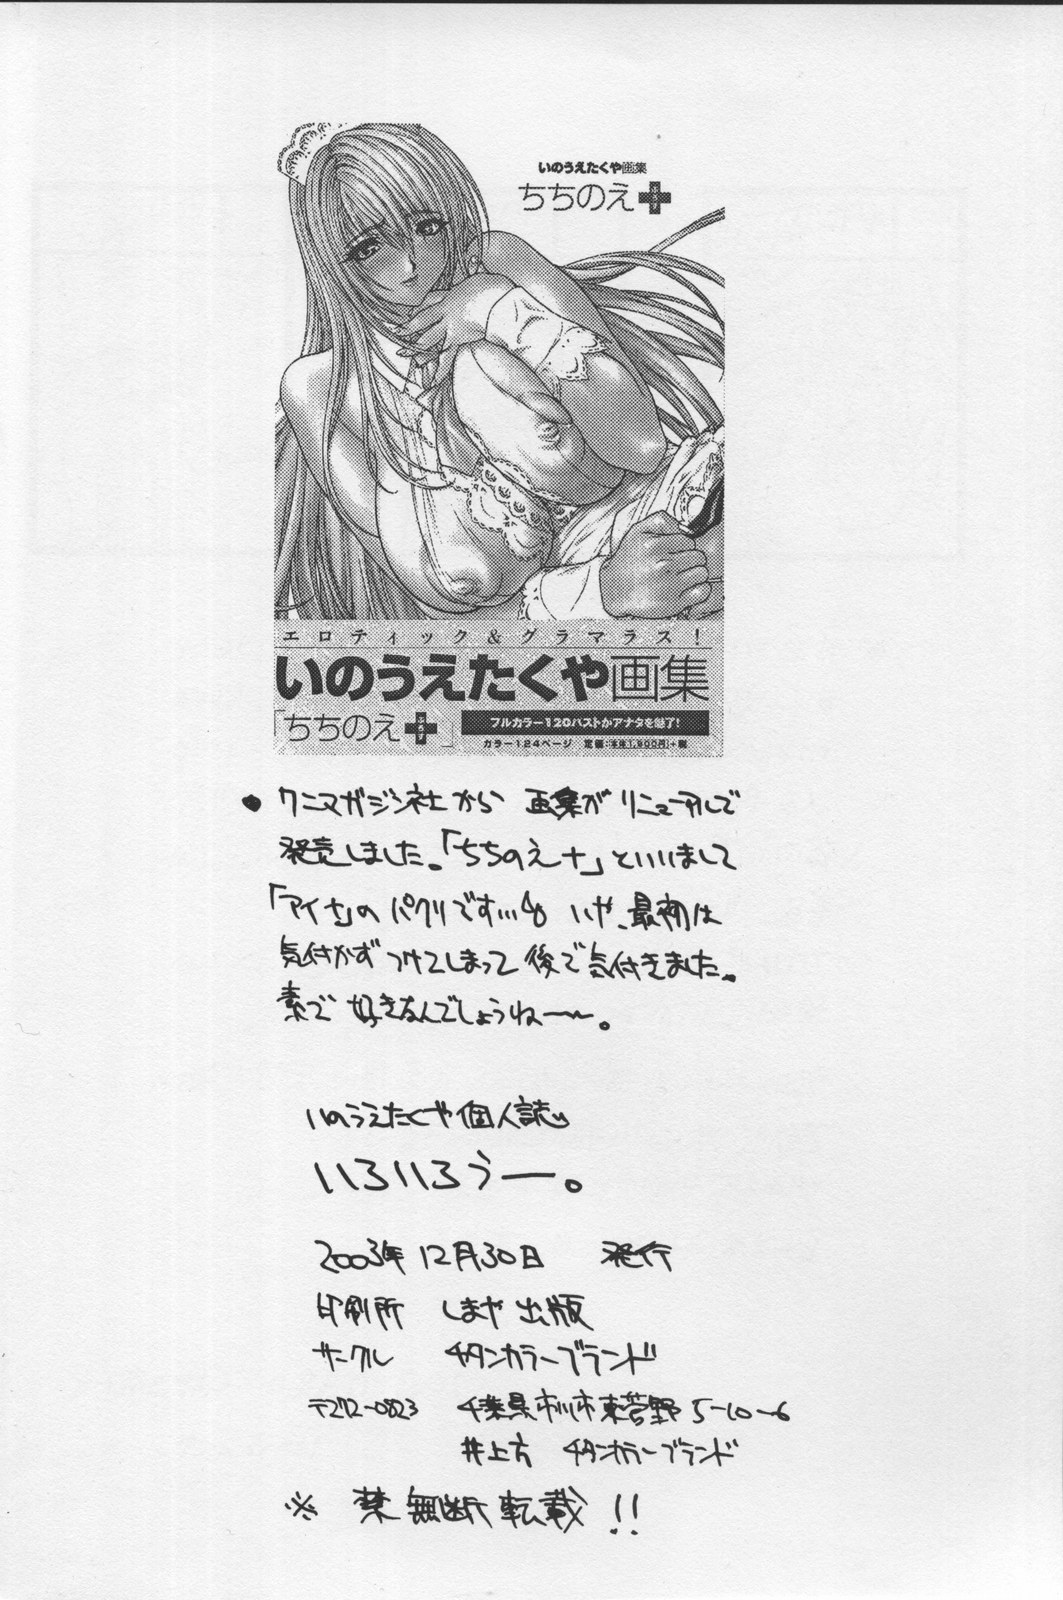 いのうえたくや画集
ちちのえ
ぷらす
エロティック&グラマラス!
いのうえたくや画集
「ちちのえ ぷらす」
フルカラー120バストがアナタを魅了!
カラー124ページ 定価:本体1,900円+税
● ワニマガジン社から 画集がリニューアルして
発売しました。「ちちのえ+」といいまして
「アイナ」の パクリです… いや、最初は
気付かず つけてしまって 後で気付きました。
素で 好きなんでしょうね〜〜。
いのうえたくや個人誌
いろいろぅー。
2003年 12月30日 発行
印刷所 しまや出版
サークル チタンカラーブランド
〒272-0823 千葉県市川市東菅野 5-10-6
井上方 チタンカラーブランド
※ 禁 無断転載 !!